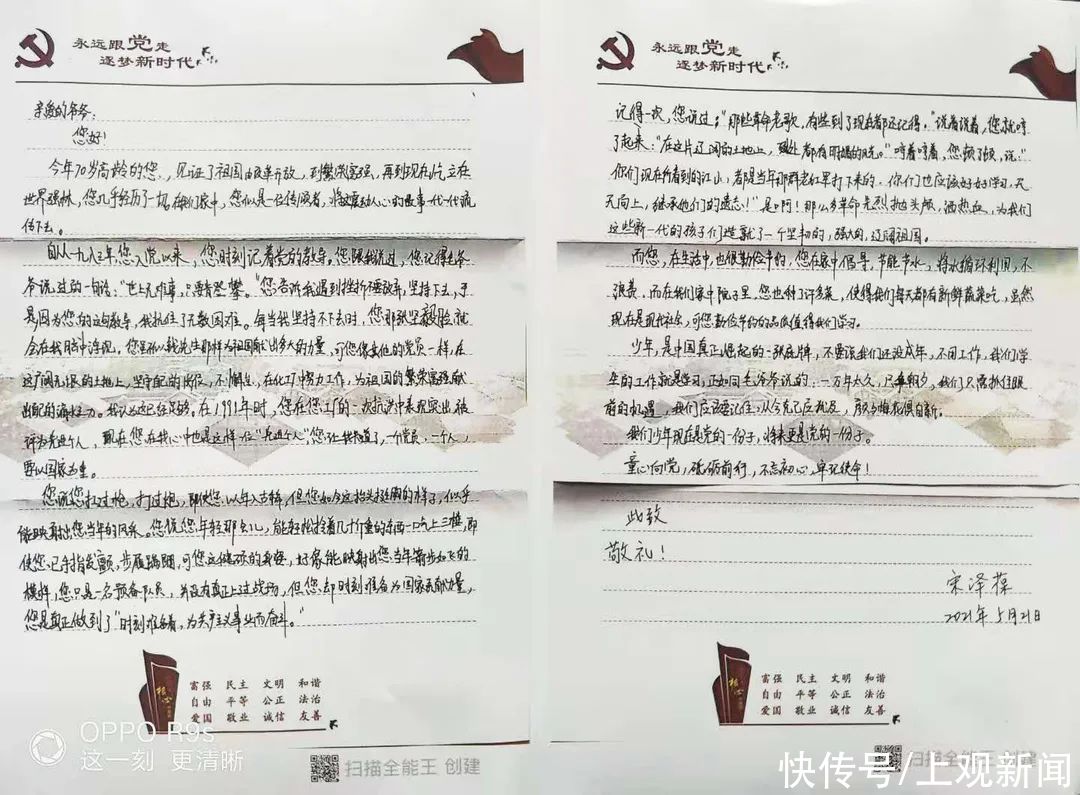 永远跟党走
逐梦新时代
亲爱的爷爷:
您好!
今年70岁高龄的您,见证了祖国由改革开放,到繁荣富强,再到现在屹立在
世界强林,您几乎经历了一切,在我们家中,您似是一位传颂者,将这震动人心的故事一代一代流
传下去。
自从一九八三年,您入党以来,您时刻记着党的教导。您跟我说过,您记得毛爷
爷说过的一句话:"世上无难事,只要肯登攀。"您告诉我遇到挫折不要放弃,坚持下去,于
是,因为您的这句教导,我抗住了无数困难。每当我坚持不下去时,您那张坚毅脸就
会在我脑中浮现。您虽似钱先生那样为祖国献出多大的力量,可您像其他的党员一样,在
这广阔无限的土地上,坚守自己的岗位,不懈怠,在化工厂努力工作,为祖国的繁荣富强献
出自己的薄力。我认为这已经足够。在1991年时,您在您工厂的一次抗洪中表现突出被
评为先进个人,现在您在我心中也是这样一位"先进个人"您让我知道了,一个党员,一个人,
要以国家为重。
您说您扛过枪,打过炮,即使您以年入古稀,但您如今这抬头挺胸的样子,似乎
能映射出您当年的风采。您说您年轻那会儿,能轻松拎着几十斤重的东西一口气上三楼,即
使您已手指发颤,步履蹒跚,可您这健硕的身躯,好像能映射出您当年箭步如飞的
模样,您只是一名预备队员,并没有真正上过战场,但您却时刻准备为国家贡献力量,
您是真正做到了"时刻准备着,为共产主义事业而奋斗。"
富强 民主 文明 和谐
自由 平等 公正 法治
爱国 敬业 诚信 友善
OPPO R9s
这一刻 更清晰
扫描全能王 创建
永远跟党走
逐梦新时代
记得一次,您说过:"那些革命老歌,有些到了现在都还记得。"说着说着,您就哼
了起来:"在这片辽阔的土地上,到处都有明媚的风光。"哼着哼着,您顿了顿,说:"
你们现在所看到的江山,都是当年那群老红军打下来的,你们也应该好好学习,天
天向上,继承他们的遗志!"是啊!那么多革命先烈抛头颅,洒热血,为我们
这些新一代的孩子们造就了一个坚韧的,强大的,辽阔祖国。
而您,在生活中,也很勤俭节约,您在家中倡导,节能节水,将水循环利用,不
浪费,而在我们家中院子里,您也种了许多菜,使得我们每天都有新鲜蔬菜吃,虽然
现在是现代社会,可您勤俭节约的品质值得我们学习。
少年,是中国真正崛起的一张底牌,不要说我们还没成年,不用工作,我们学
生的工作就是学习,正如同毛爷爷说的:一万年太久,只争朝夕,我们只需抓住眼
前的机遇,我们应该要记住,从今克己应犹及,颜与梅花俱自新。
我们少年现在是党的一份子,将来更是党的一份子。
童心向党,砥砺前行,不忘初心,牢记使命!
此致
敬礼!
宋泽葆
2021年5月21日
富强 民主 文明 和谐
自由 平等 公正 法治
爱国 敬业 诚信 友善
扫描全能王 创建
快传号/上观新闻